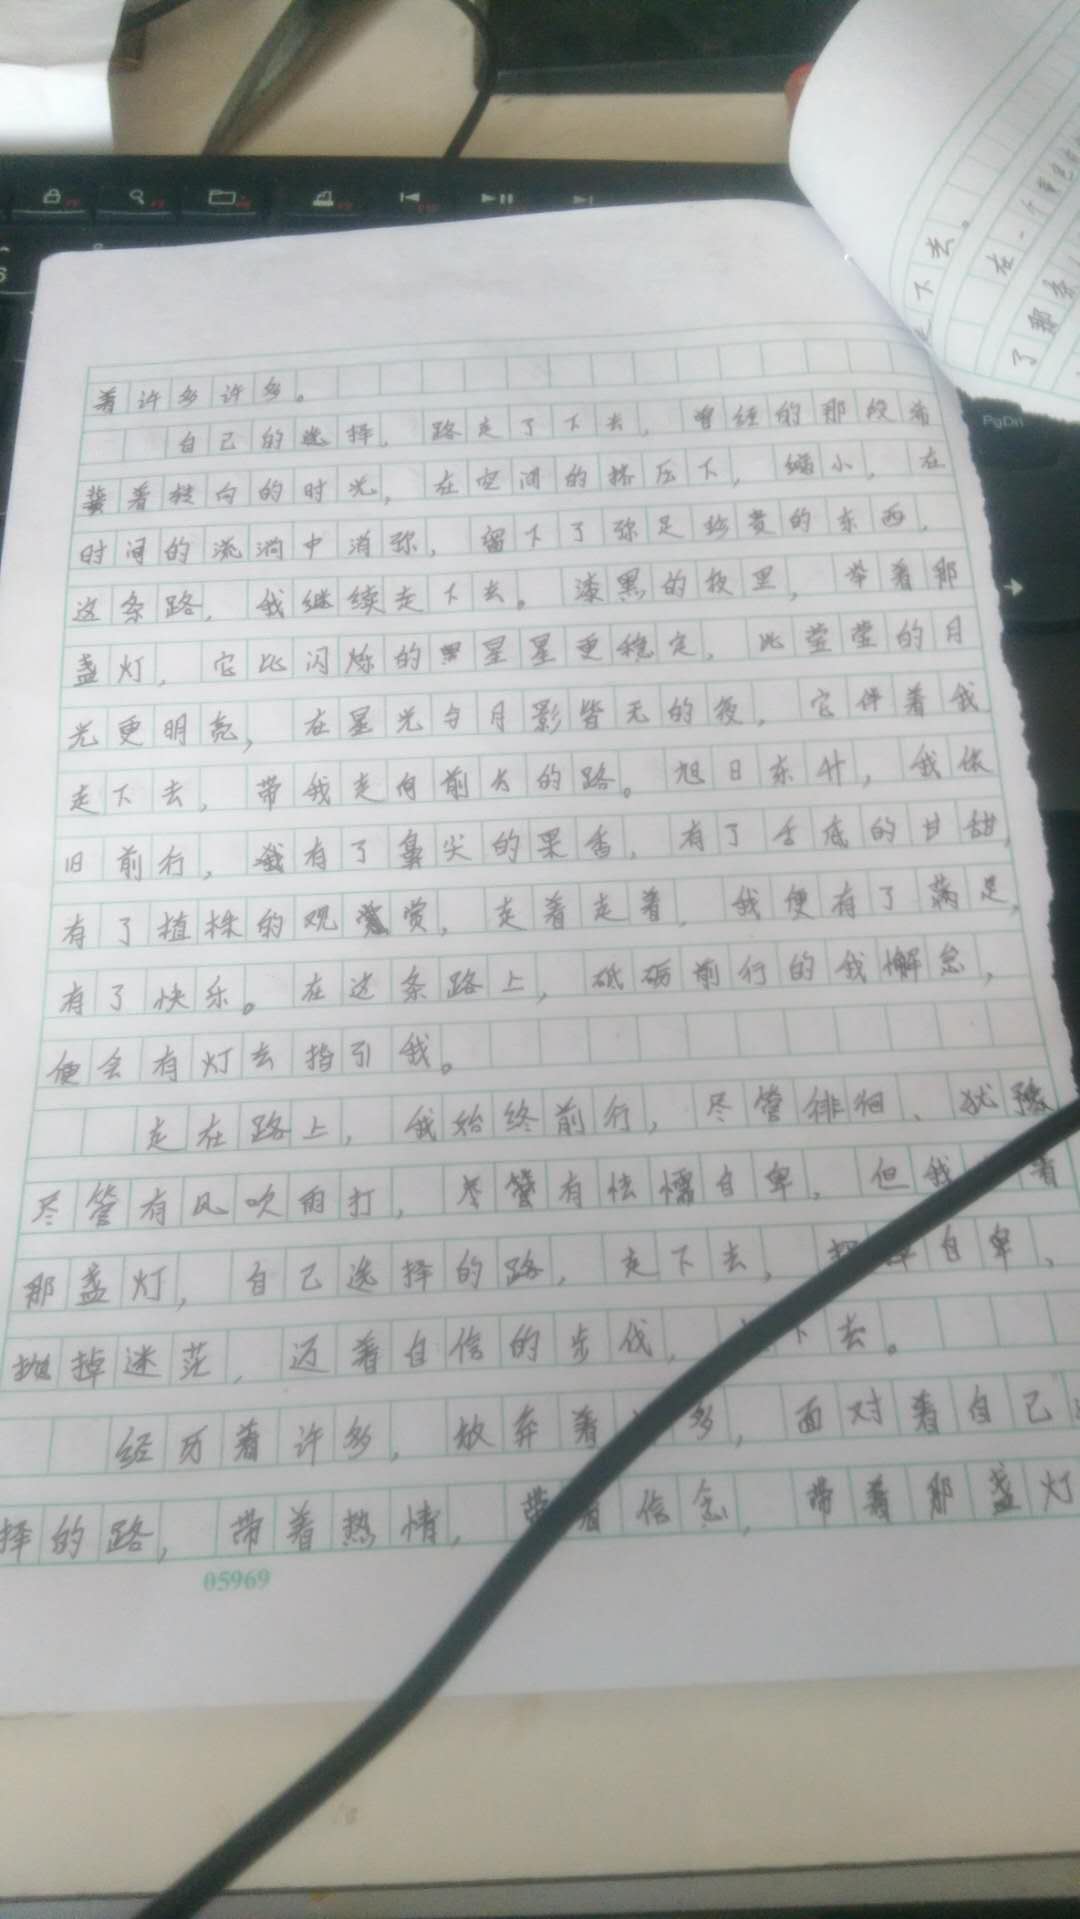 着许多许多。
自己的选择，路走了下去，曾经的那段
着转向的时光，在空间的挤压下，缩小，在
时间的流淌中消弥，留下了弥足珍贵的东西，
这条路，我继续走下去。漆黑的夜里，举着那
盏灯，它比闪烁的星星更稳定，比莹莹的月
光更明亮，在星光与月影皆无的夜，它伴着我
走下去，带我走向前方的路。旭日东升，我依
旧前行，有了鼻尖的果香，有了舌底的甘甜，
有了植株的观赏，走着走着，我便有了满足，
有了快乐。在这条路上，砥砺前行的我懈怠，
便会有灯去指引我。
走在路上，我始终前行，尽管徘徊、犹豫
尽管有风吹雨打，尽管有怯懦自卑，但我 着
那盏灯，自己选择的路，走下去， 自卑、
抛掉迷茫，迈着自信的步伐， 下去。
经历着许多，放弃着 多，面对着自己
择的路，带着热情，带着信念，带着那盏灯
05969
下去。
在一个
了那条
PgDn